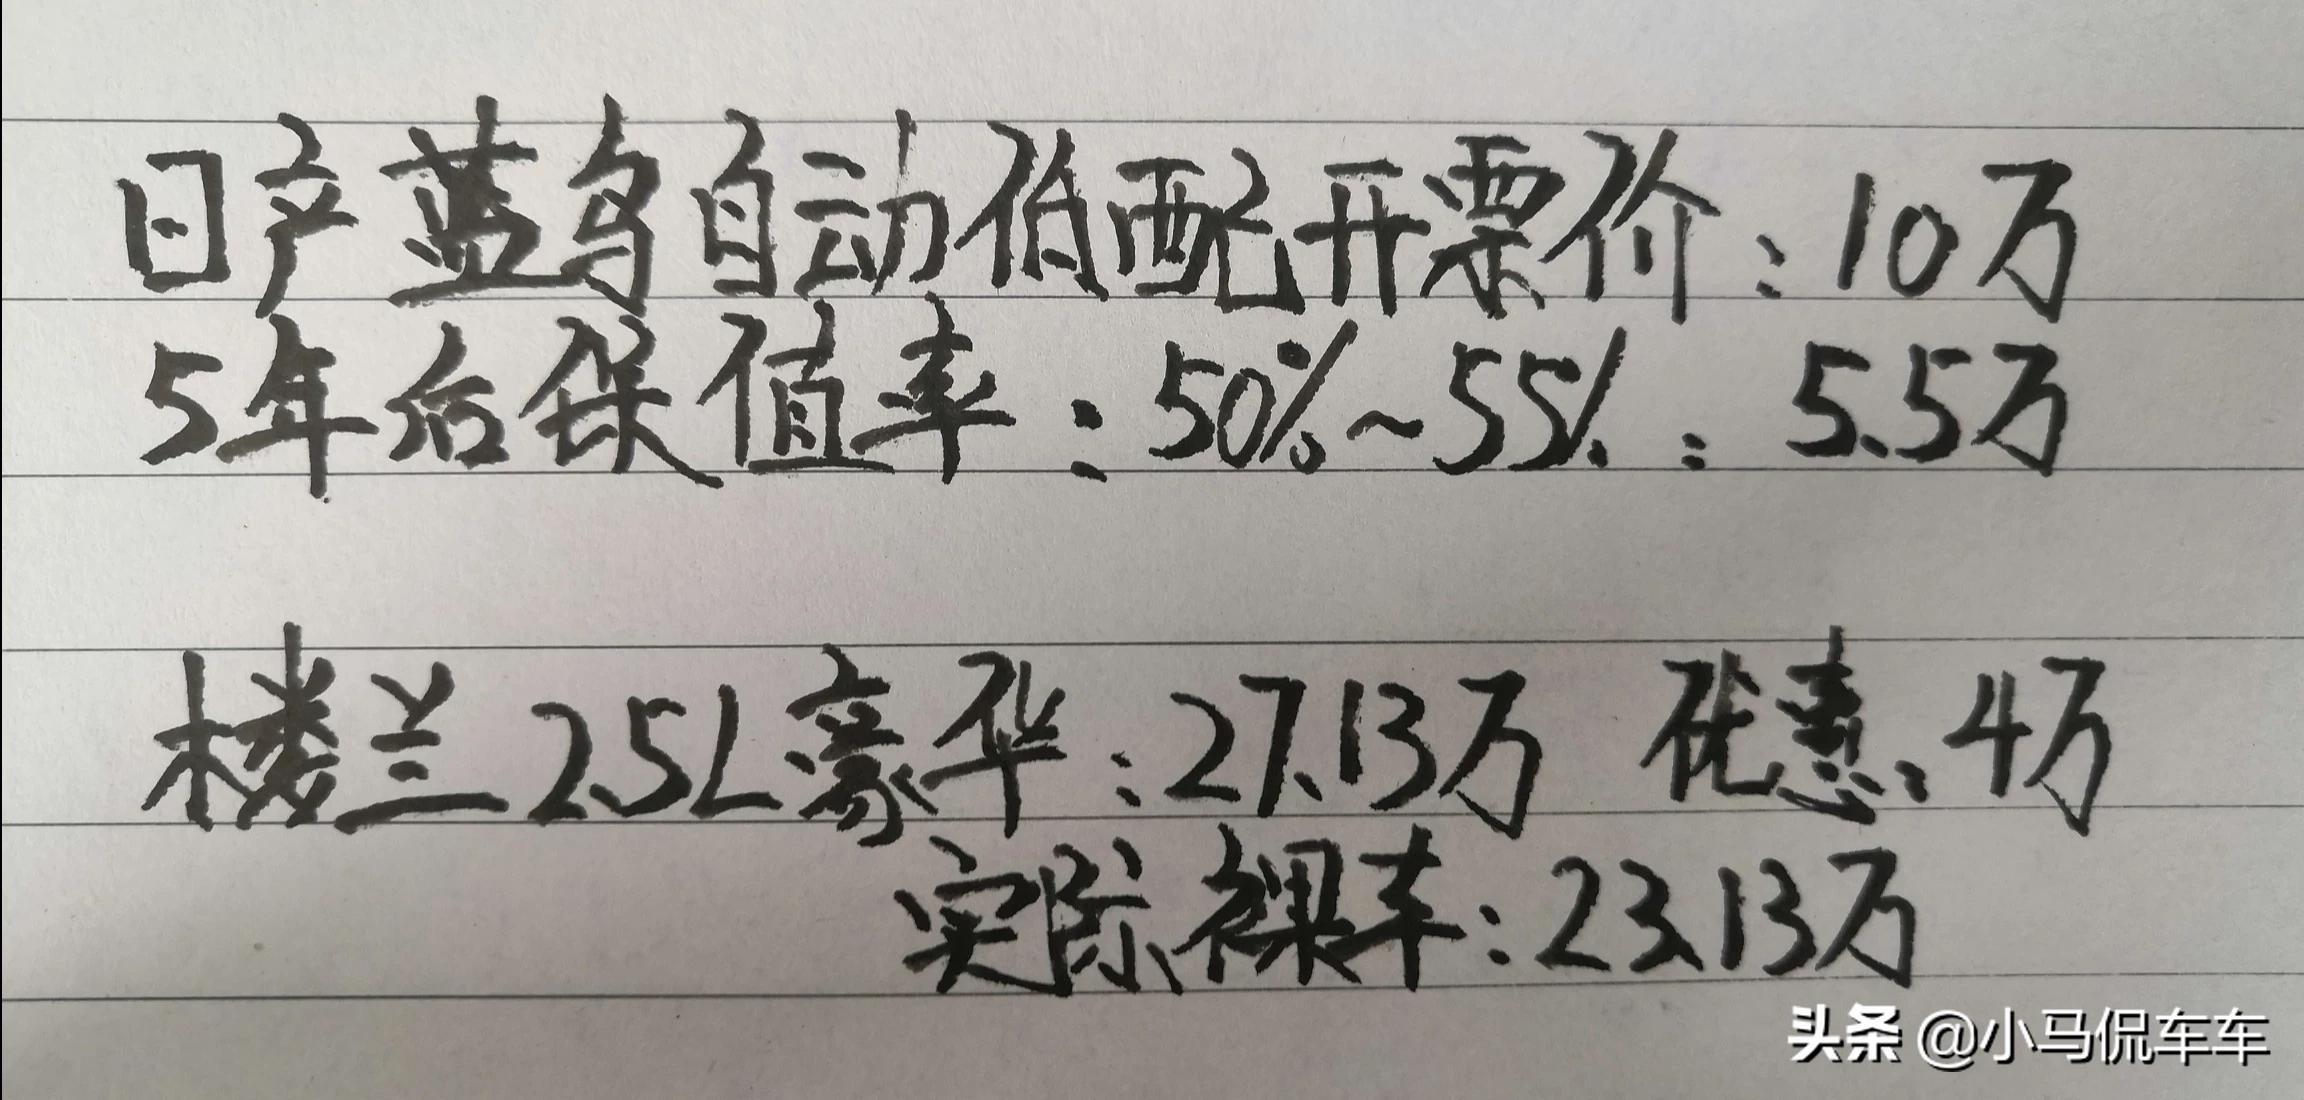 日产蓝鸟自动低配开票价：10万
5年后保值率：50%~55%：5.5万
楼兰2.5L豪华：27.13万 优惠：4万
实际裸车：23.13万
头条 @小马侃车车